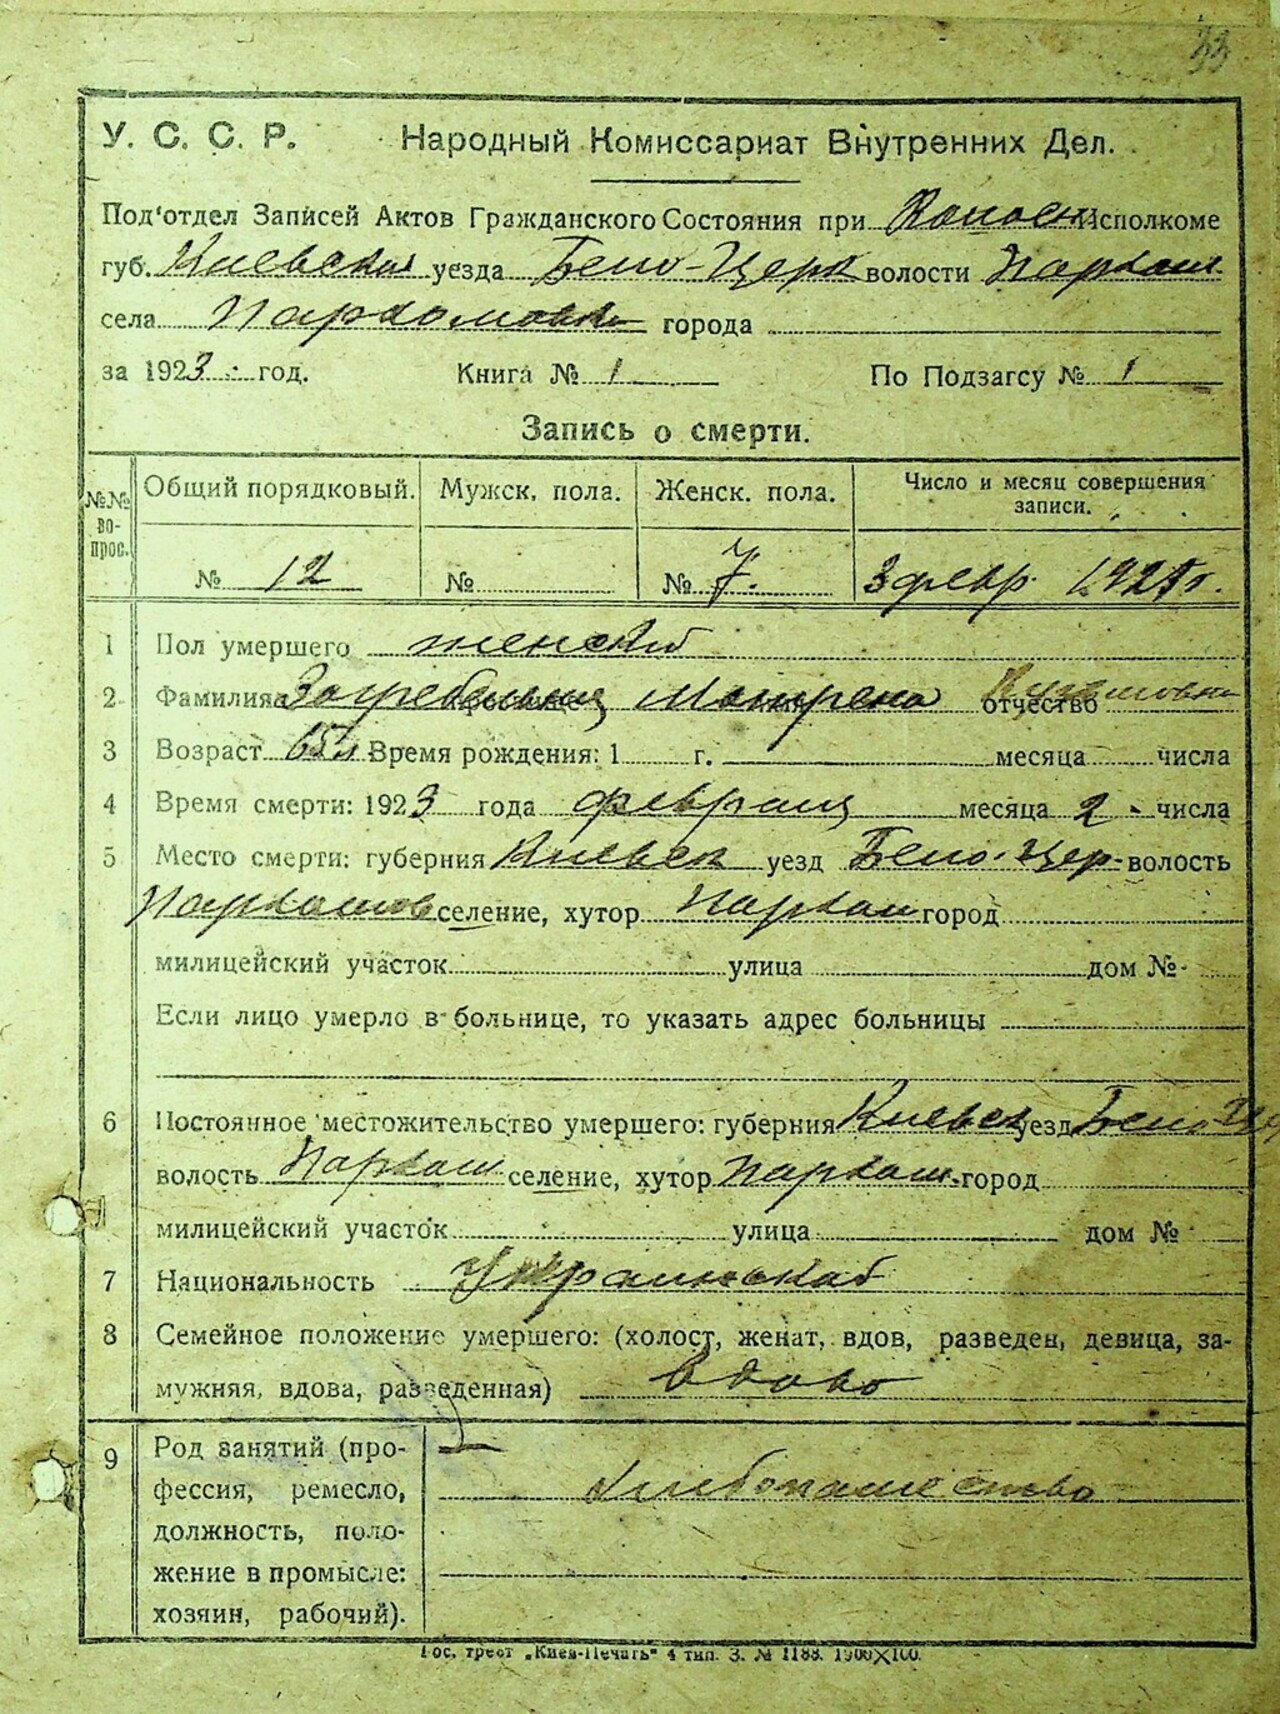 33
У. С. С. Р. Народный Комиссариат Внутренних Дел.
Под'отдел Записей Актов Гражданского Состояния при Исполкоме
губ. Киевская уезда Бело-Церк волости Пархом
села Пархомовка города
за 1923 год. Книга № 1 По Подзагсу № 1
Запись о смерти.
№№ во-прос. Общий порядковый. Мужск. пола. Женск. пола. Число и месяц совершения записи.
№ 12 № № 7. 3 февр 1923 г.
1 Пол умершего женский
2 Фамилия Загребельная Мотрена отчество
3 Возраст 65 л Время рождения: 1 г. месяца числа
4 Время смерти: 1923 года февраля месяца 2 числа
5 Место смерти: губерния Киевск уезд Бело-Цер- волость
Пархомов селение, хутор Пархом город
милицейский участок улица дом №
Если лицо умерло в больнице, то указать адрес больницы
6 Постоянное местожительство умершего: губерния Киевск уезд Бело Цер
волость Пархом селение, хутор Пархом. город
милицейский участок улица дом №
7 Национальность Украинская
8 Семейное положение умершего: (холост, женат, вдов, разведен, девица, за-
мужняя, вдова, разведенная) вдова
9 Род занятий (про-
фессия, ремесло, хлебопашество
должность, поло-
жение в промысле:
хозяин, рабочий).
Гос. трест „Киев-Печать" 4 тип. З. № 1188. 1900X100.